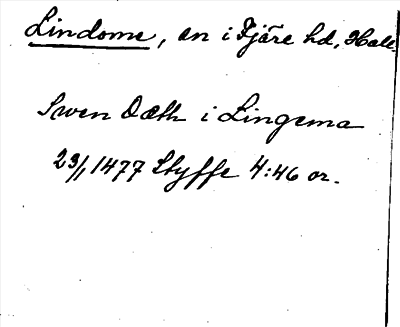 Lindome, sn i Fjäre hd, Hall.
Swen Dæth i Lingema
23/1 1477 Styffe 4:46 or.